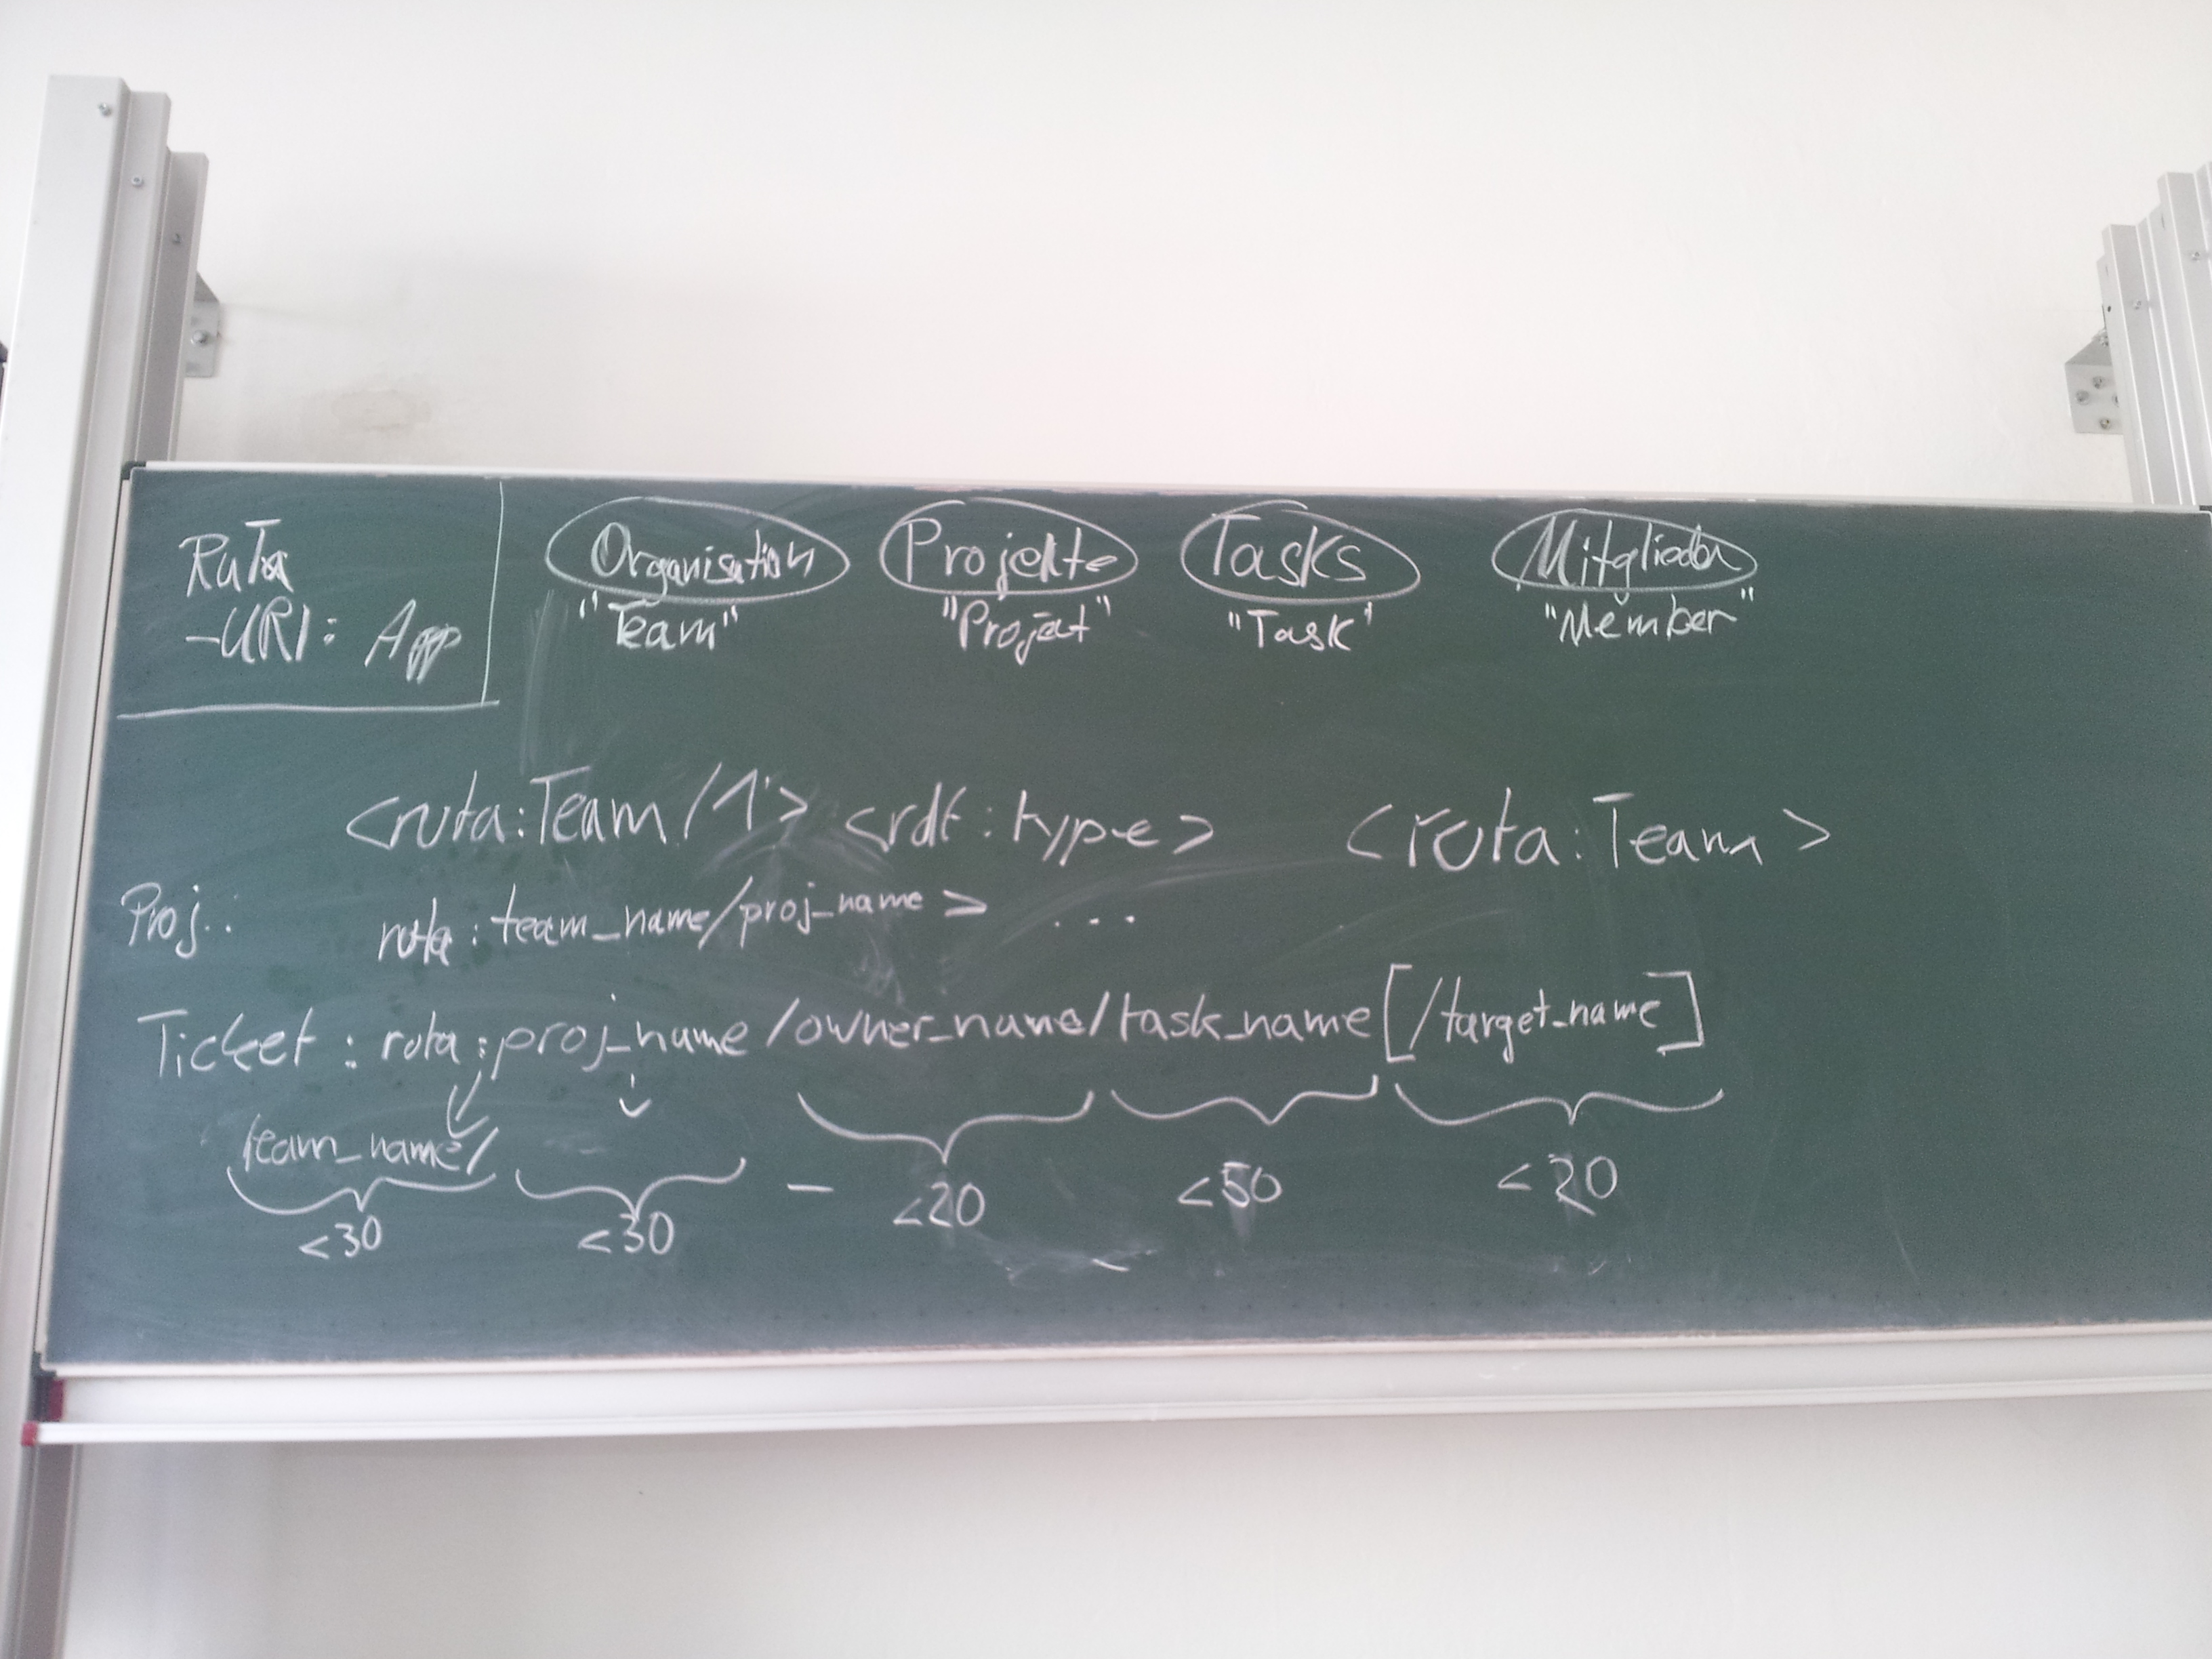 RuTa
-URI: App
Organisation Projekte Tasks Mitglieder
"Team" "Project" "Task" "Member"
<ruta:Team/1> <rdf:type> <ruta:Team>
Proj.: ruta:team_name/proj_name> ...
Ticket: ruta:proj_name/owner_name/task_name[/target_name]
team_name/
<30 <30 - <20 <50 <20